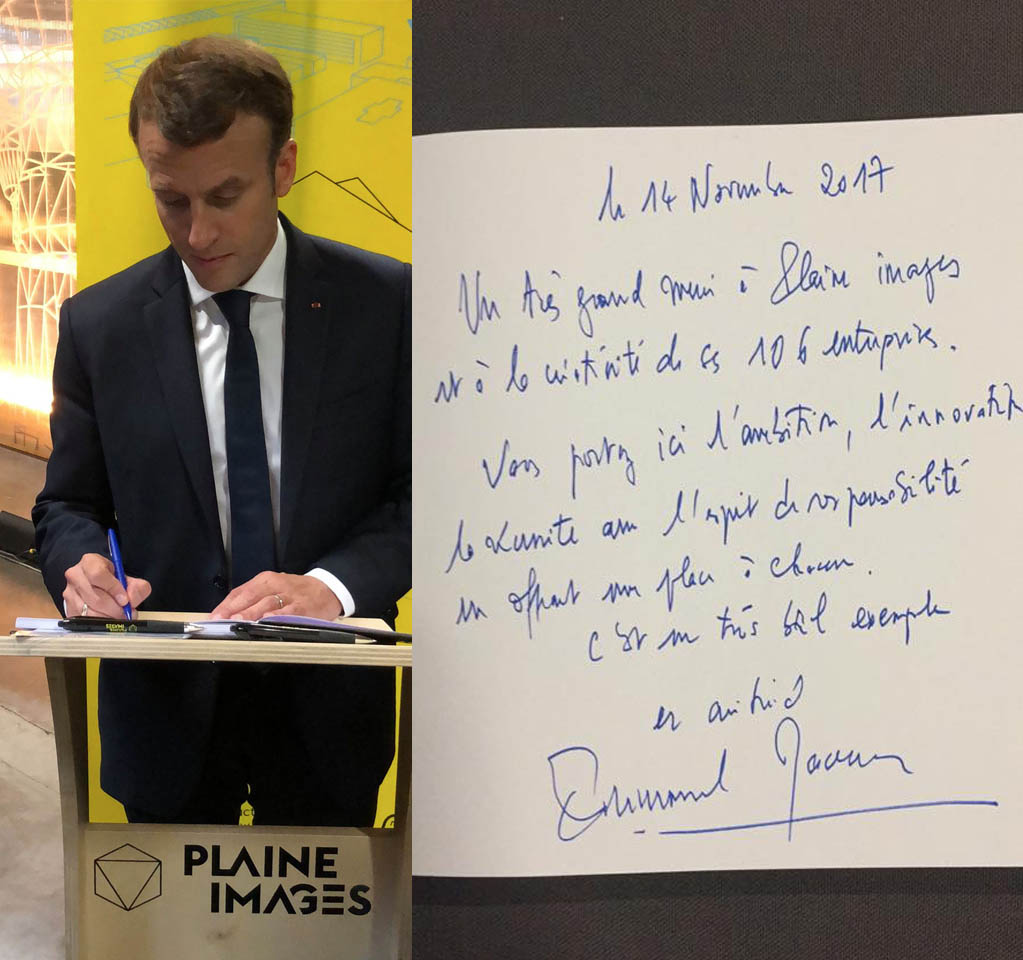 PLAINE
IMAGES
le 14 Novembre 2017
Un très grand merci à Plaine images
et à la créativité de ces 106 entreprises.
Vous portez ici l'ambition, l'innovation
la réussite avec l'esprit de responsabilité
en offrant une place à chacun.
C'est un très bel exemple
et amitié
Emmanuel Macron